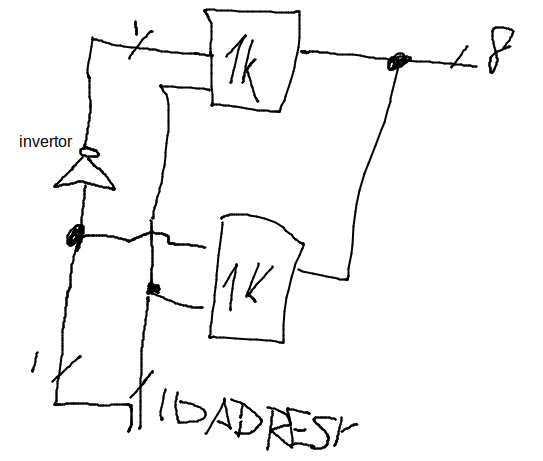 1
8
1k
invertor
1K
1
10 ADRESY